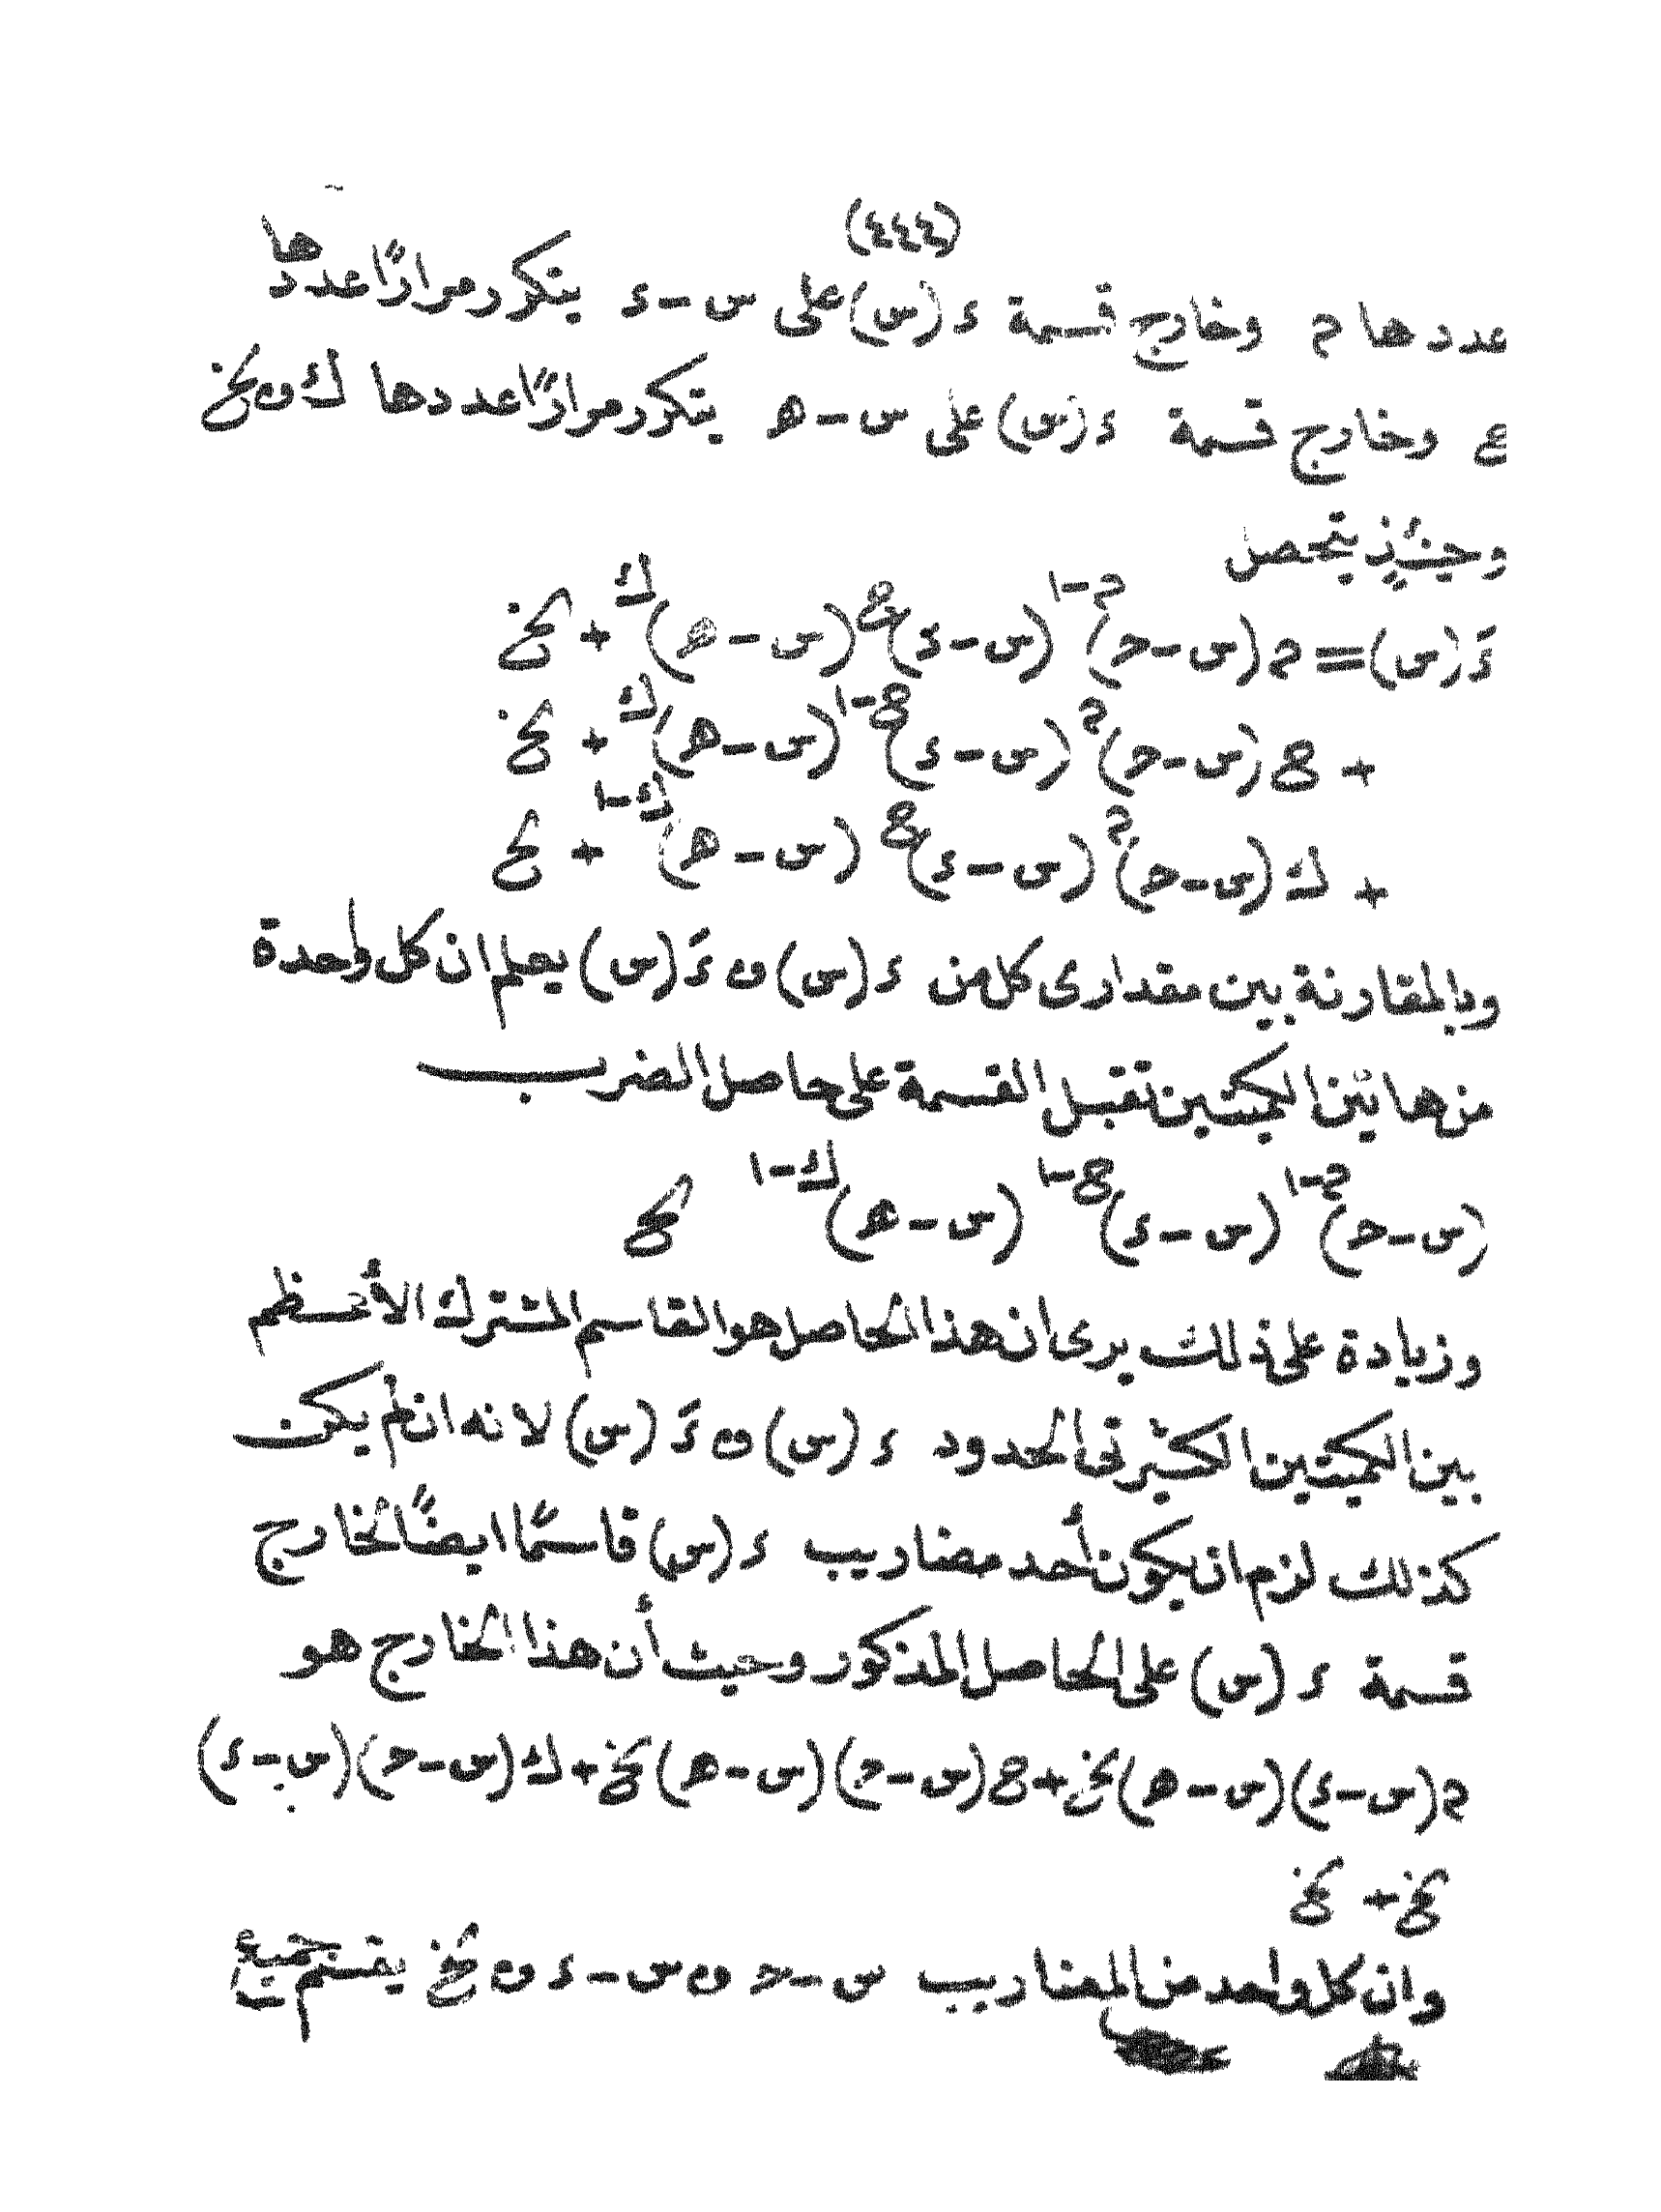 (٤٤٤)
عددها م وخارج قسمة د (س) على س - د يتكرر مرارًا عددها
ع وخارج قسمة د (س) على س - ه يتكرر مرارًا عددها ك و الخ
وحينئذٍ يتحصل
دَ (س) = م (س - ح)^م-١ (س - د)^ع (س - ه)^ك + الخ
+ ع (س - ح)^م (س - د)^ع-١ (س - ه)^ك + الخ
+ ك (س - ح)^م (س - د)^ع (س - ه)^ك-١ + الخ
وبالمقارنة بين مقدارى كل من د (س) و دَ (س) يعلم ان كل واحدة
من هاتين الكميتين تقبل القسمة على حاصل الضرب
(س - ح)^م-١ (س - د)^ع-١ (س - ه)^ك-١ الخ
وزيادة على ذلك يرى ان هذا الحاصل هو القاسم المشترك الأعظم
بين الكميتين الكثيرتى الحدود د (س) و دَ (س) لانه ان لم يكن
كذلك لزم ان يكون أحد مضاريب د (س) قاسمًا ايضًا لخارج
قسمة دَ (س) على الحاصل المذكور وحيث أن هذا الخارج هو
م (س - د) (س - ه) الخ + ع (س - ح) (س - ه) الخ + ك (س - ح) (س - د)
الخ + الخ
وان كل واحد من المضاريب س - ح و س - د و الخ يقسم جميع